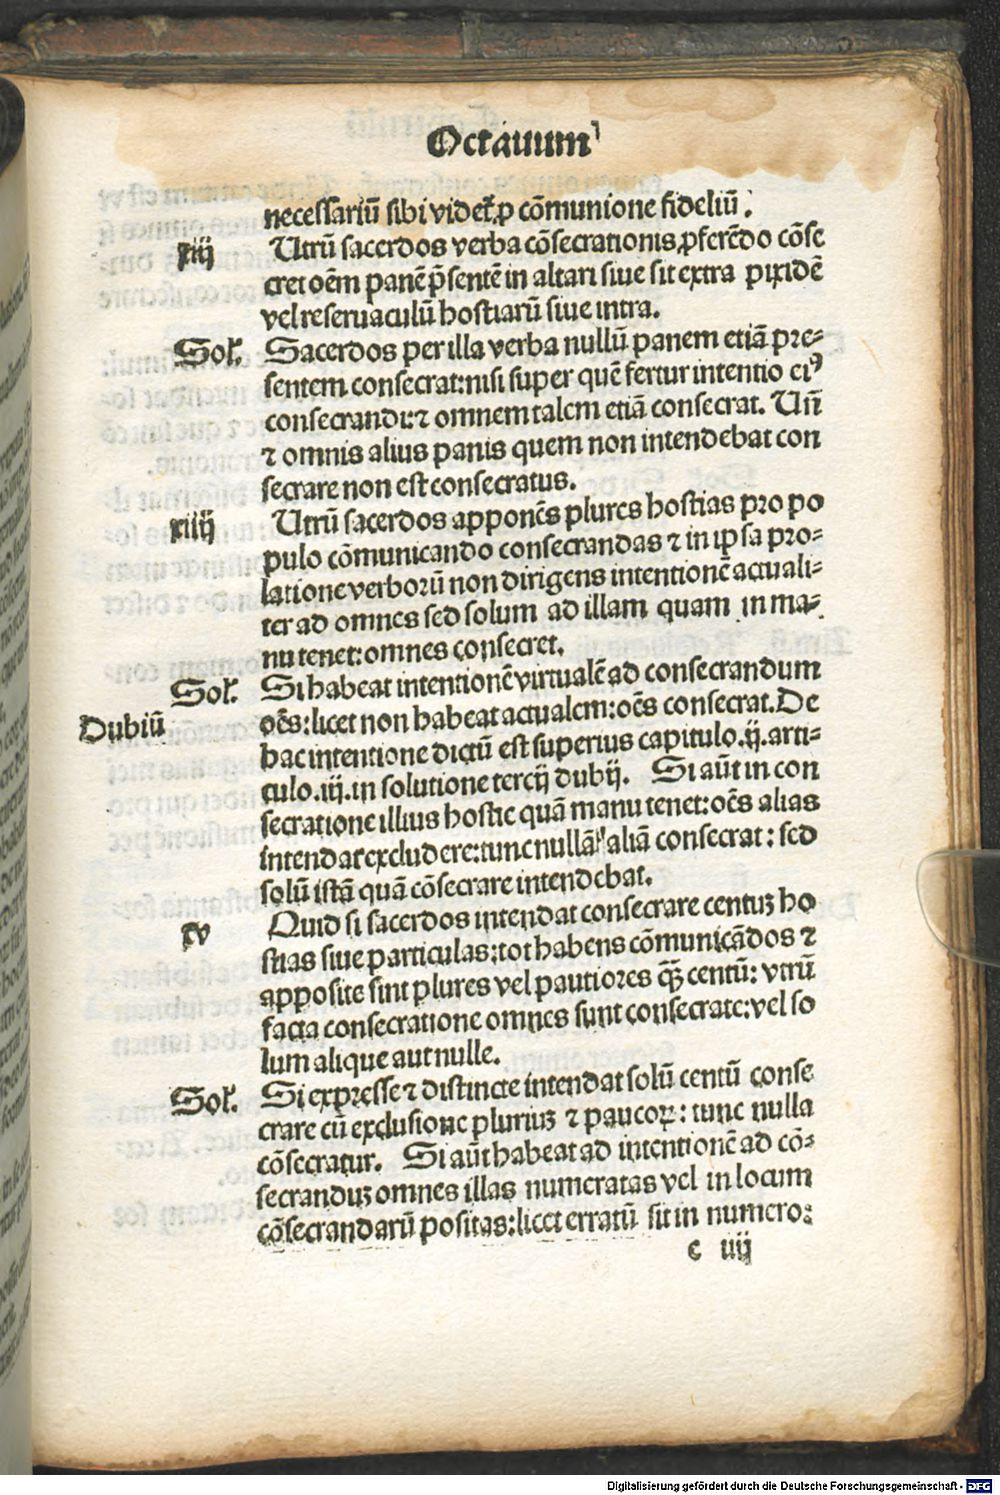 Octauum
necessariū sibi videt̄ ꝓ cōmunione fideliū.
xiij Utrū sacerdos verba cōsecrationis ꝓferēdo cōse
cret oēm panē p̄sentē in altari siue sit extra pixidē
vel reseruaculū hostiarū siue intra.
Sol'. Sacerdos per illa verba nullū panem etiā pre⸗
sentem consecrat: nisi super quē fertur intentio eiꝰ
consecrandi: ⁊ omnem talem etiā consecrat. Un̄
⁊ omnis alius panis quem non intendebat con
secrare non est consecratus.
xiiij Utrū sacerdos apponēs plures hostias pro po
pulo cōmunicando consecrandas ⁊ in ipsa pro⸗
latione verborū non dirigens intentionē actuali⸗
ter ad omnes sed solum ad illam quam in ma⸗
nu tenet: omnes consecret.
Sol'. Si habeat intentionē virtualē ad consecrandum
Dubiū oēs: licet non habeat actualem: oēs consecrat. De
hac intentione dictū est superius capitulo .ij. arti⸗
culo .iij. in solutione tercij dubij. Si aūt in con
secratione illius hostie quā manu tenet: oēs alias
intendat excludere: tunc nullā aliā consecrat: sed
solū istā quā cōsecrare intendebat.
xv Quid si sacerdos intendat consecrare centuꝫ ho
stias siue particulas: tot habens cōmunicādos ⁊
apposite sint plures vel pautiores q̄ꝫ centū: vtrū
facta consecratione omnes sunt consecrate: vel so
lum alique aut nulle.
Sol'. Si expresse ⁊ distincte intendat solū centū conse
crare cū exclusione pluriuꝫ ⁊ paucoꝝ: tunc nulla
cōsecratur. Si aūt habeat ad intentionē ad cō⸗
secranduꝫ omnes illas numeratas vel in locum
cōsecrandarū positas: licet erratū sit in numero:
c iiij
Digitalisierung gefördert durch die Deutsche Forschungsgemeinschaft - DFG